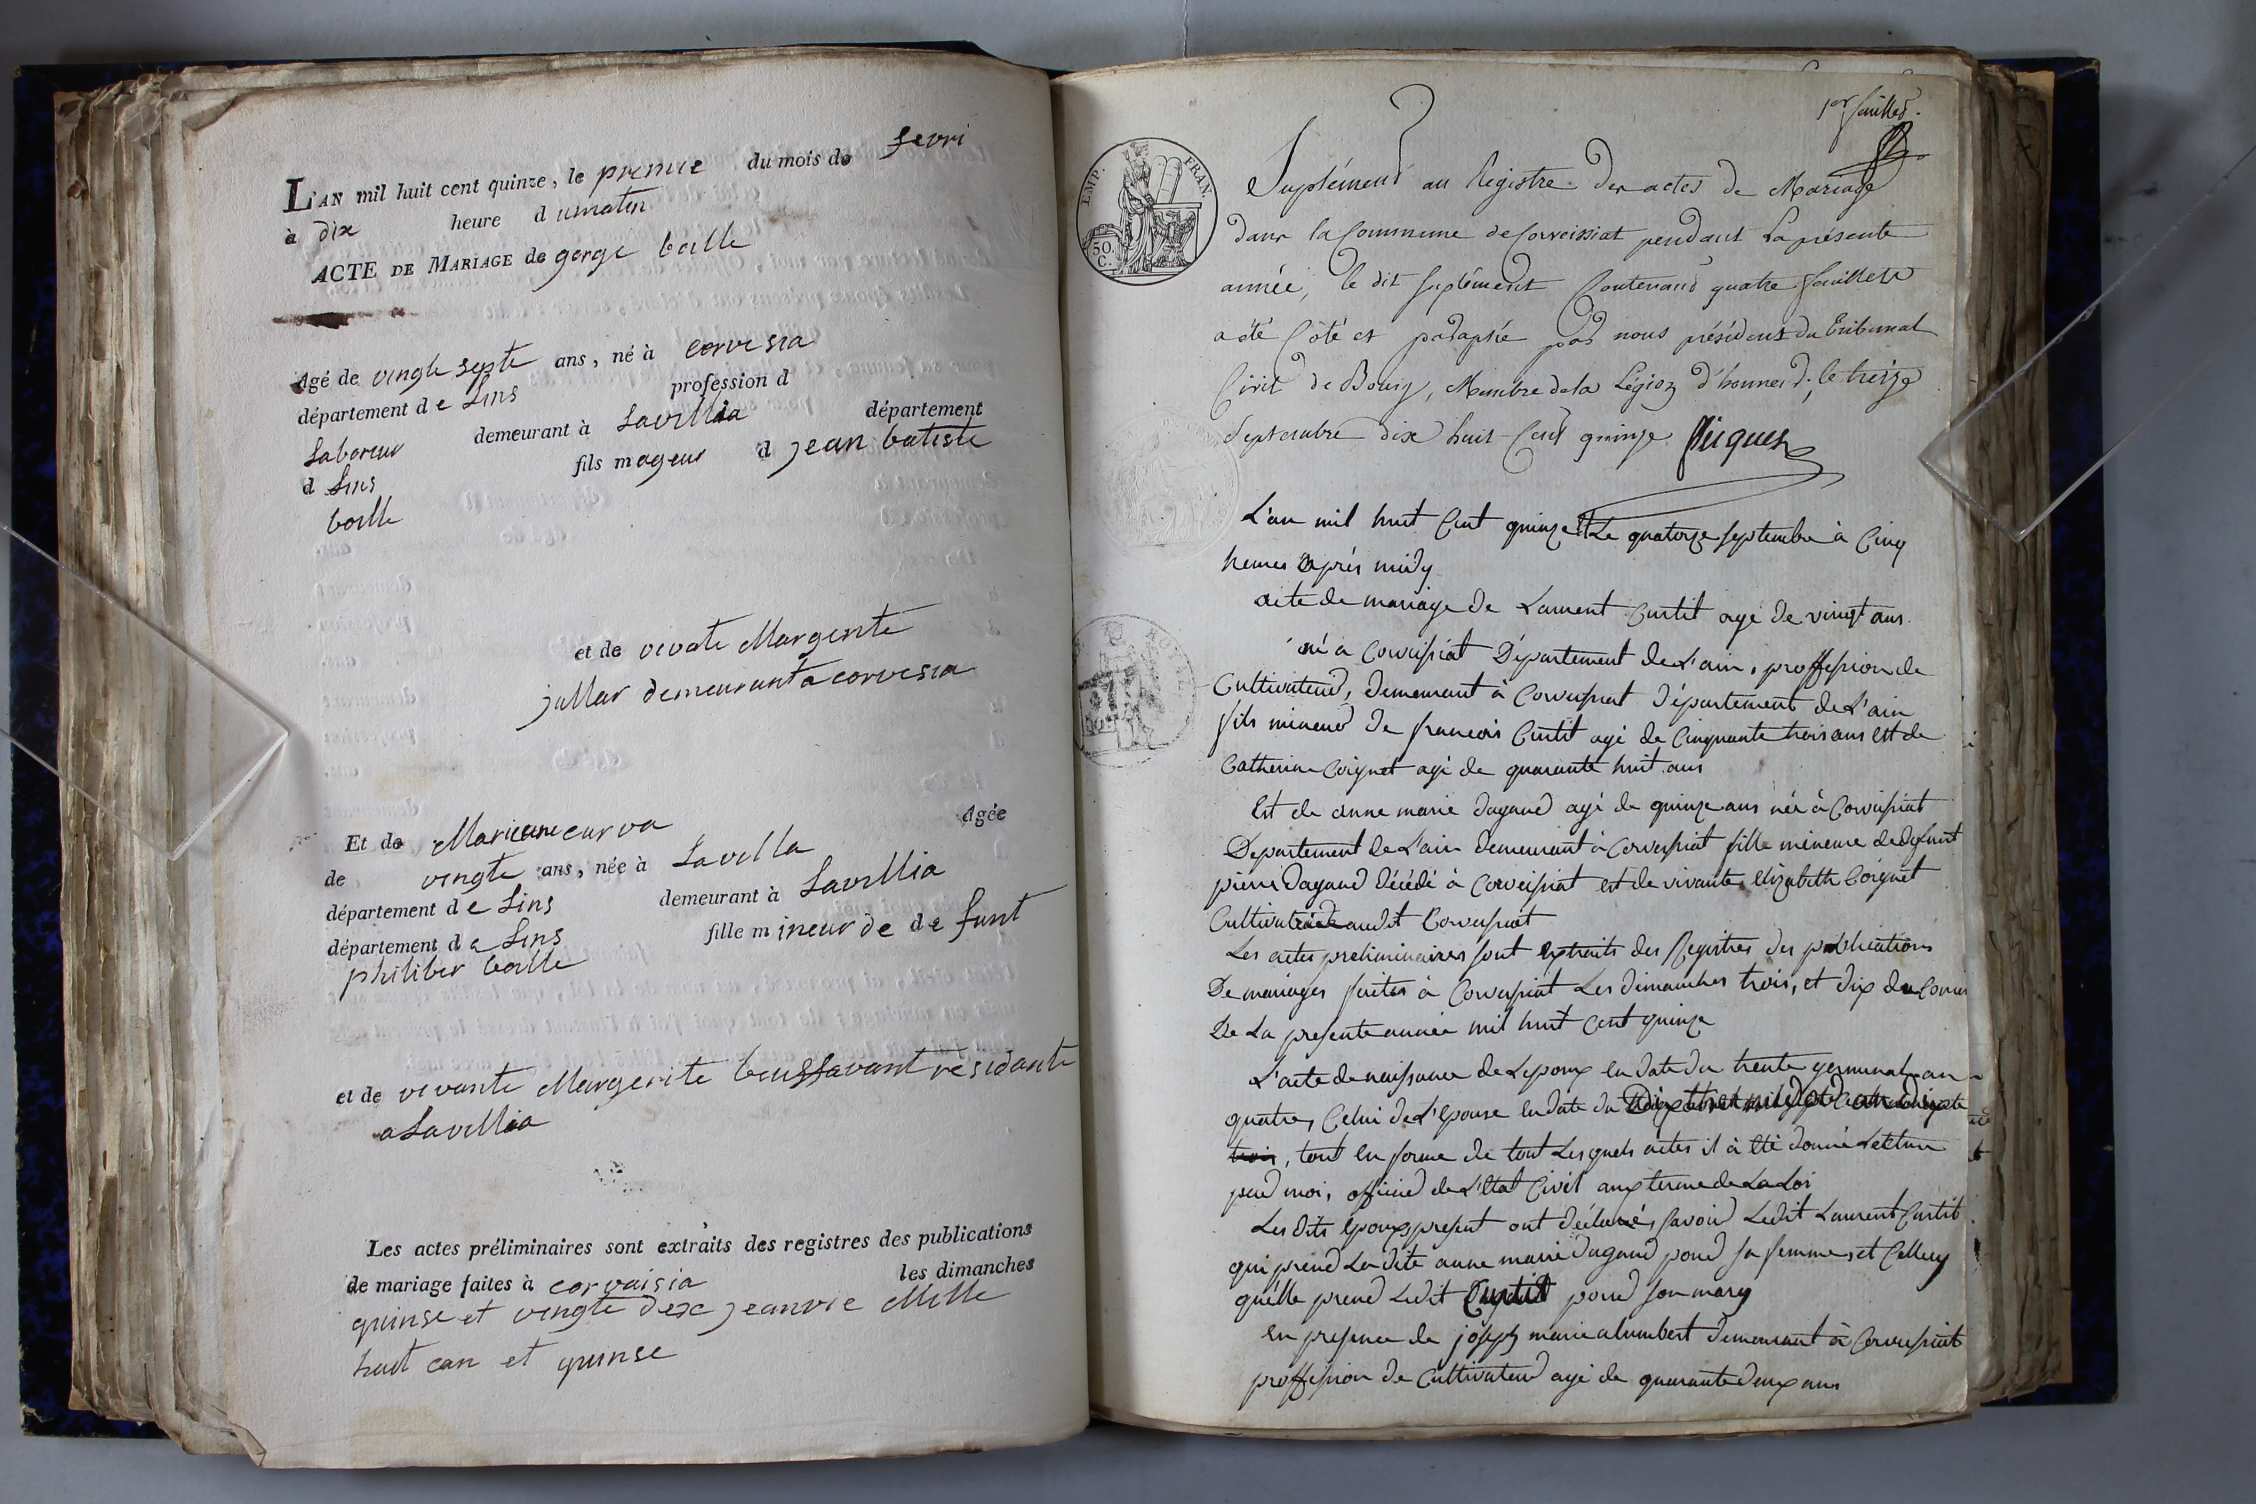 L'AN mil huit cent quinze, le premie du mois de fevri
à dix heure d umaten
ACTE DE MARIAGE de gorge boille
Agé de vingte septe ans, né à corvesia
département d e Lins profession d
Laboreur demeurant à Lavillia département
d Lins fils mageur d jean batiste
boille
et de vivate Margerite
jullar demeurant a corvesia
Et de Marieane curva Agée
de vingte ans, née à Lavilla
département d e Lins demeurant à Lavillia
département d e Lins fille m ineur de de funt
philiber boille
et de vivante Margerite boussavant residante
a Lavillia
Les actes préliminaires sont extraits des registres des publications
de mariage faites à corvaisia les dimanches
quinse et vingte dex jeanvie Mille
huit can et quinse
1er feuillet.
EMP. FRAN.
50 C.
Suplément au Registre des actes de Mariage
dans la Commune de Corveissiat pendant la présente
année, le dit suplément Contenant quatre feuillets
a été Côté et paraphé par nous président du tribunal
Civil de Bourg, Membre de la Légion d'honneur, le treize
Septembre dix huit Cent quinze Picquet
L'an mil huit Cent quinze Et Le quatorze septembre à Cinq
heures après midy
acte de mariage de Laurent Curtil agé de vingt ans
né a Corveissiat Département de L'ain, proffession de
Cultivateur, demeurant à Corveissiat Département de L'ain
fils mineur de francois Curtil agé de Cinquante trois ans Et de
Catherine Coignet agé de quarante huit ans
Est de anne marie dagaud agé de quinze ans née à Corveissiat
Departement de L'ain demeurant à Corveissiat fille mineure de defunt
pierre dagaud décédé à Corveissiat est de vivante Elizabeth Coignet
Cultivatrice audit Corveissiat
Les actes preliminaires sont Extraits des Registres des publications
De mariages faites à Corveissiat Les dimanches trois, et dix du Courant
De La presente année mil huit Cent quinze
L'acte de naissance de L'epoux en date du trente germinal an
quatre, Celui de L'epouse en date du
trois, tout en forme de tout Les quels actes il à Eté donné Lecture
par moi, officier de L'Etat Civil aux terme de La Loi
Les dits Epoux present ont déclarés savoir Ledit Laurent Curtil
qui prend La dite anne marie dagaud pour sa femme, et Celle cy
qu'elle prend Ledit Curtil pour son mary
En presence de joseph marie alumbert demeurant à Corveissiat
proffession de Cultivateur agé de quarante deux ans